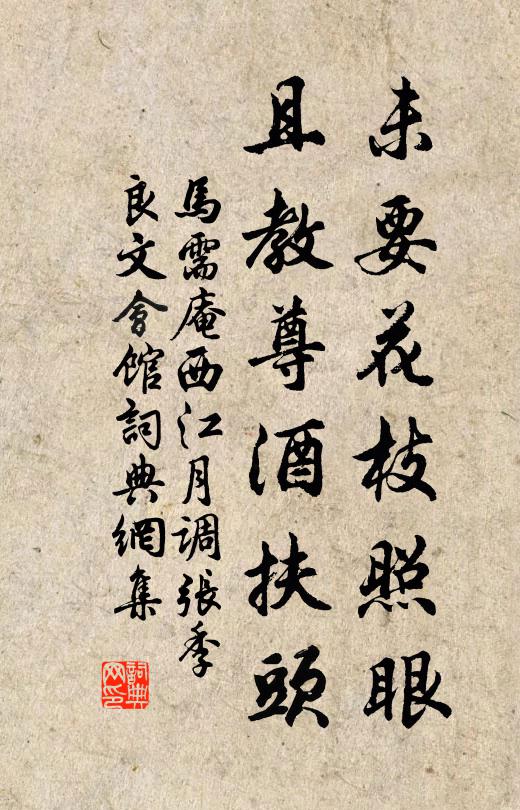 未要花枝照眼
且教尊酒扶頭
馬需庵西江月調張季
良文會館詞典網集
詞典網印